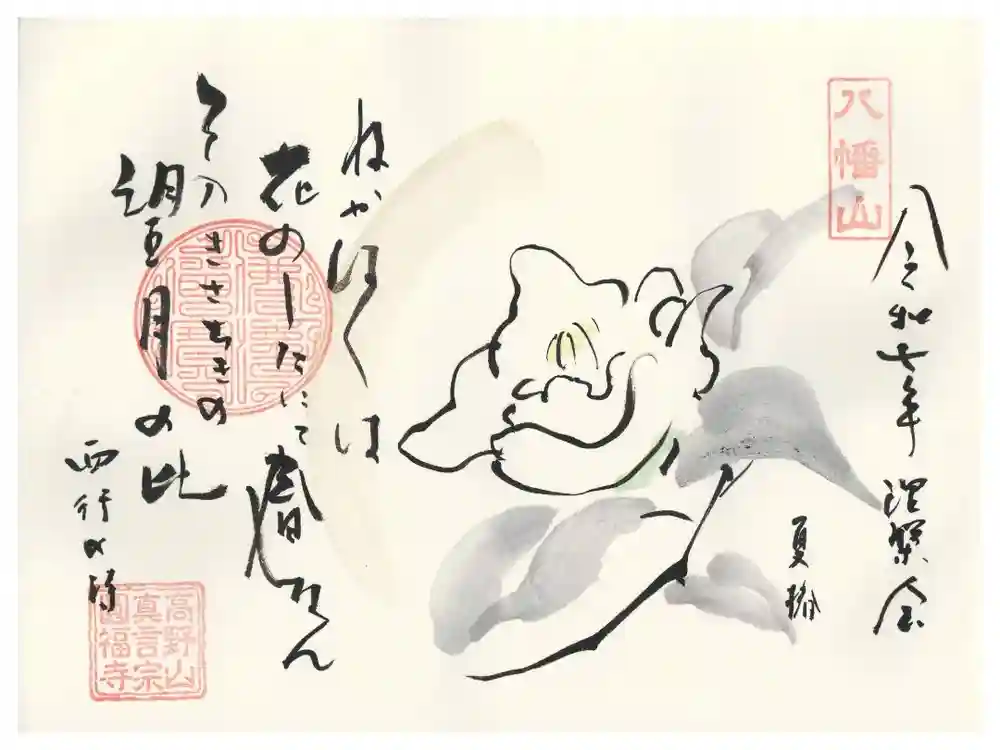 八幡山
令和七年 涅槃会
夏椿
ねかはくは
花のしたにて春しなん
そのきさらきの
望月の比
西行の詩
高野山
真言宗
福寺